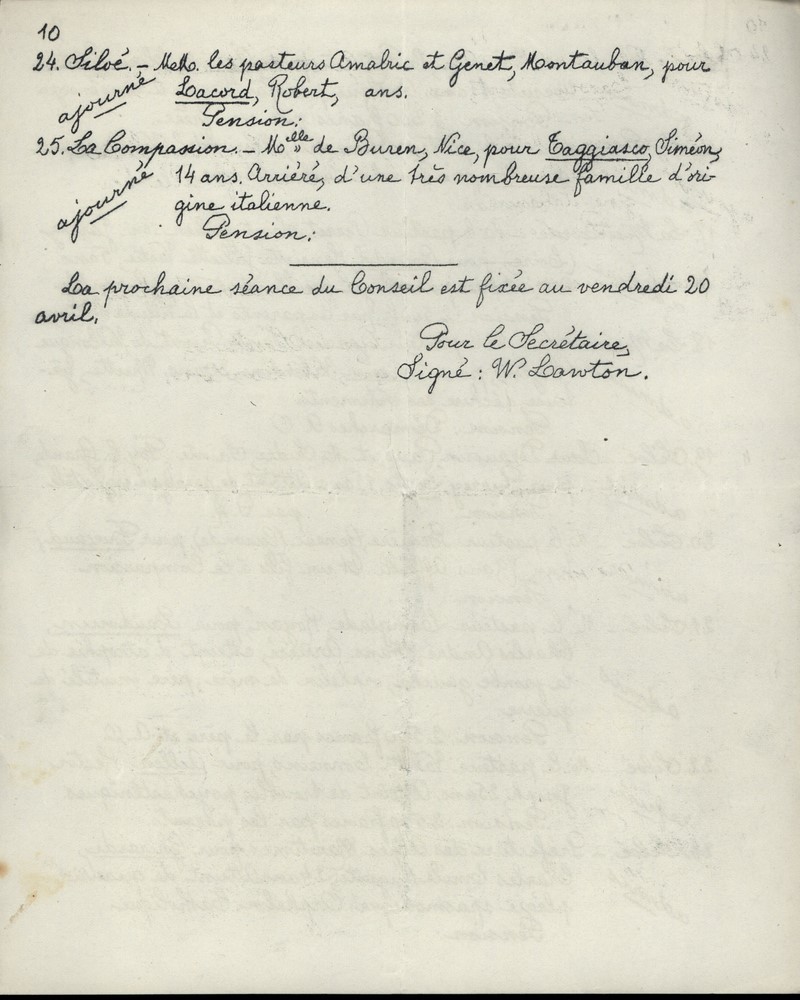 10
24. Siloé. – M.M. les pasteurs Amalric et Genet, Montauban, pour
ajourné
Lacord, Robert, ans.
Pension:
25. La Compassion. – Melle de Buren, Nice, pour Taggiasco, Siméon,
ajourné
14 ans. Arriéré, d'une très nombreuse famille d'ori-
gine italienne.
Pension:
La prochaine séance du Conseil est fixée au vendredi 20
avril.
Pour le Secrétaire,
Signé: W. Lawton.